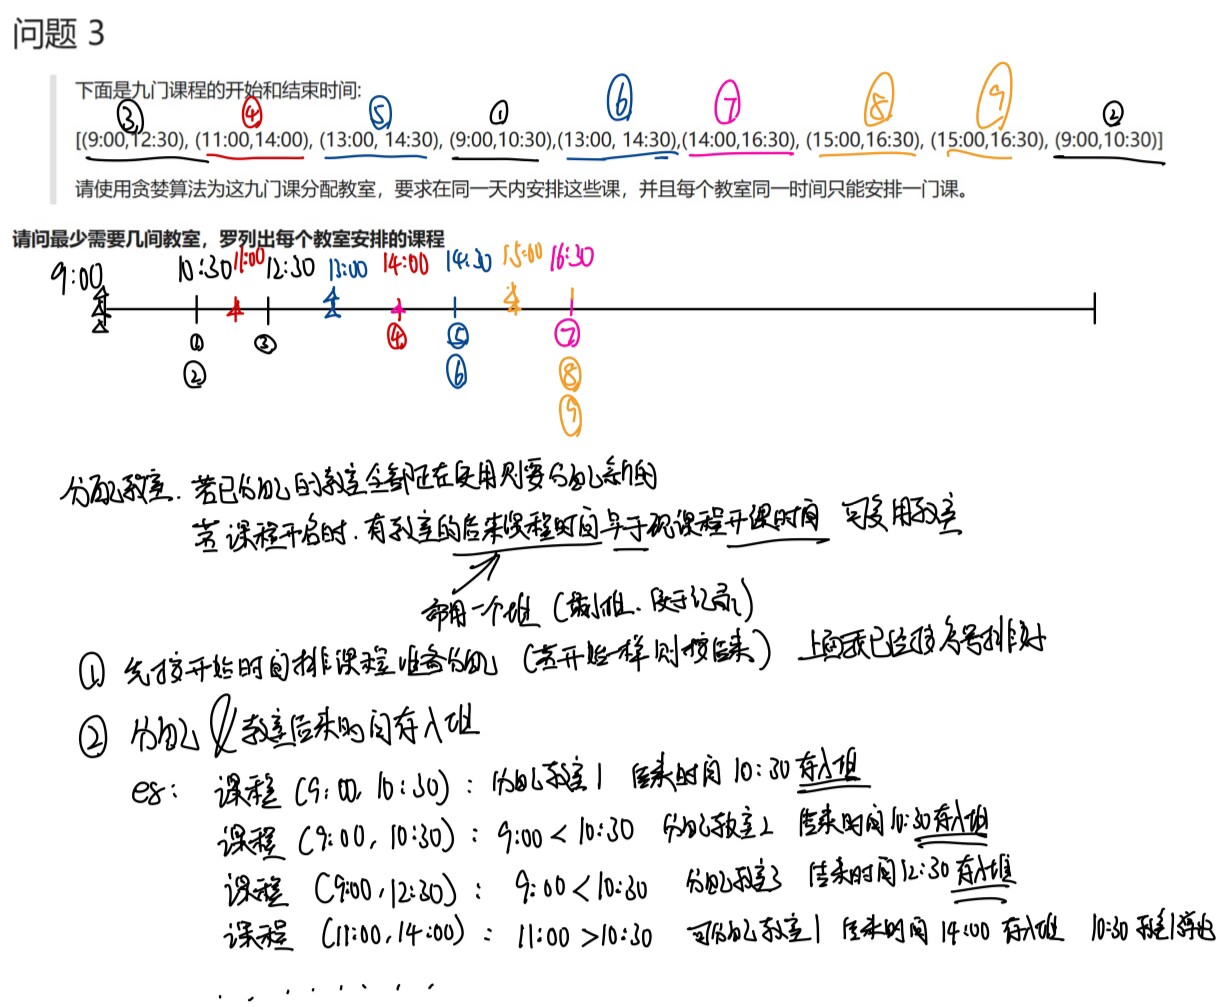 问题 3
下面是九门课程的开始和结束时间:
③ ④ ⑤ ① ⑥ ⑦ ⑧ ⑨ ②
[(9:00,12:30), (11:00,14:00), (13:00, 14:30), (9:00,10:30),(13:00, 14:30),(14:00,16:30), (15:00,16:30), (15:00,16:30), (9:00,10:30)]
请使用贪婪算法为这九门课分配教室，要求在同一天内安排这些课，并且每个教室同一时间只能安排一门课。
请问最少需要几间教室，罗列出每个教室安排的课程
9:00 10:30 11:00 12:30 13:00 14:00 14:30 15:00 16:30
① ③ ④ ⑤ ⑦
② ⑥ ⑧
⑨
分配教室. 若已分配的教室全部正在使用则要分配新的
若课程开启时. 有教室的结束课程时间早于现课程开课时间 可复用教室
即用一个堆 (最小堆. 便于记录)
① 先按开始时间排课程准备分配 (若开始一样则按结束) 上面我已经按序号排好
② 分配 教室结束时间存入堆
eg: 课程 (9:00, 10:30) : 分配教室1 结束时间 10:30 存入堆
课程 (9:00, 10:30) : 9:00 < 10:30 分配教室2 结束时间 10:30 存入堆
课程 (9:00, 12:30) : 9:00 < 10:30 分配教室3 结束时间 12:30 存入堆
课程 (11:00, 14:00) : 11:00 > 10:30 可分配教室1 结束时间 14:00 存入堆 10:30 教室1弹出
. . . . . . . .